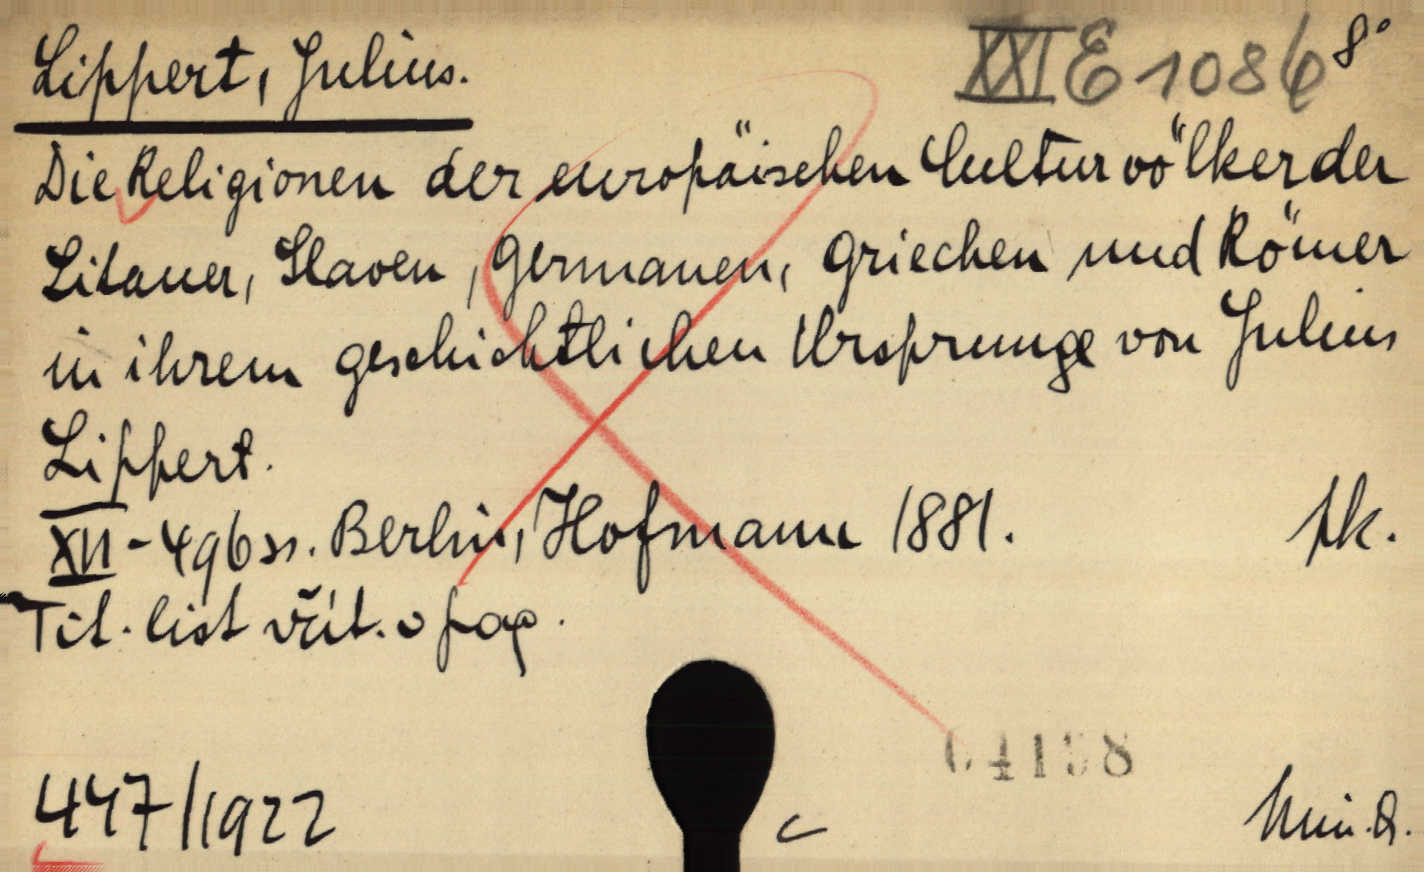 Lippert, Julius. XXI E 1086 8°
Die Religionen der europäischen Culturvölker der
Litauer, Slaven, Germanen, Griechen und Römer
in ihrem geschichtlichen Ursprunge von Julius
Lippert.
XVI - 496 ss. Berlin, Hofmann 1881. pk.
Tit. list včít. v pag.
04158
447/1922